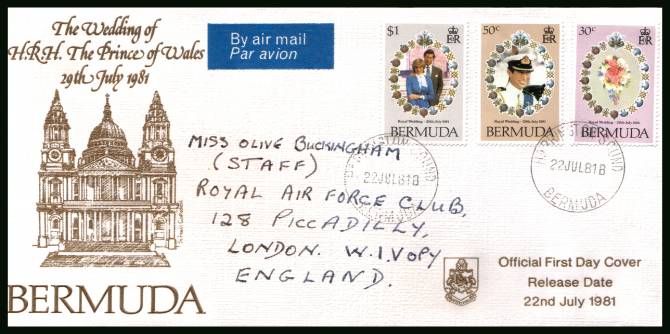 The Wedding of
H.R.H. The Prince of Wales
29th July 1981
By air mail
Par avion
$1
ER
Royal Wedding - 29th July 1981
BERMUDA
50c
ER
Royal Wedding - 29th July 1981
BERMUDA
30c
ER
Royal Wedding - 29th July 1981
BERMUDA
22JUL81B
BERMUDA
22JUL81B
BERMUDA
MISS OLIVE BUCKINGHAM
(STAFF)
ROYAL AIR FORCE CLUB,
128 PICCADILLY,
LONDON. W.1.V0PY
ENGLAND.
BERMUDA
Official First Day Cover
Release Date
22nd July 1981